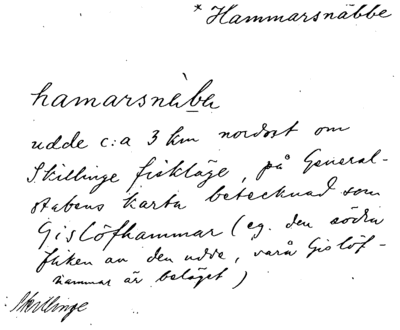 * Hammarsnäbbe
hamarsnàbe
udde c:a 3 km nordost om
Skillinge fiskläge, på General-
stabens karta betecknad som
Gislöfhammar (eg. den södra
fliken av den udde, varå Gislöf-
hammar är beläget)
Skillinge